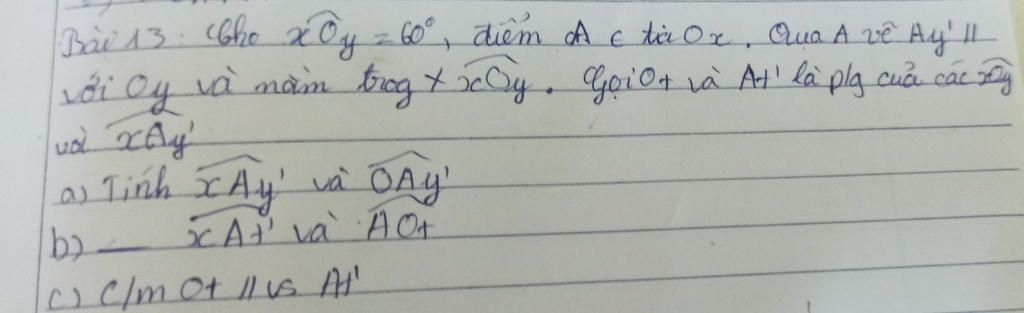 Bài 13: Cho xOy = 60°, điểm A ∈ tia Ox. Qua A vẽ Ay' //
với Oy và nằm trog + xOy. Gọi Ot và At' là p/g cuả các xOy
với xAy'
a) Tính xAy' và OAy'
b) — xAt' và AOt
c) C/m Ot // vs At'